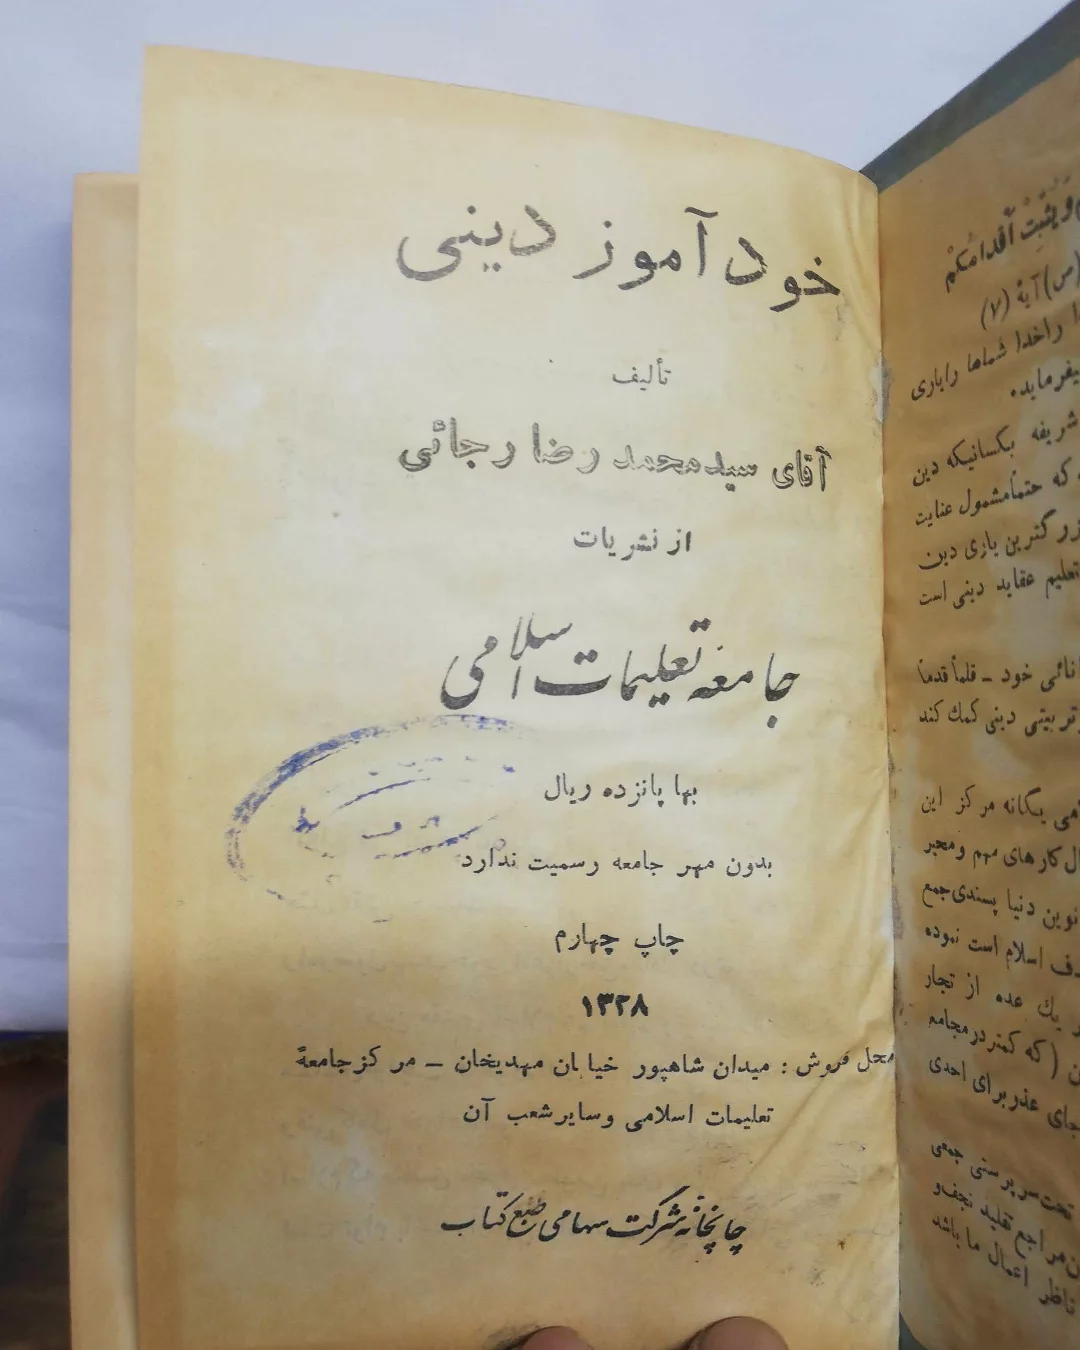 خود آموز دینی
تألیف
آقای سید محمد رضا رجائی
از نشریات
جامعه تعلیمات اسلامی
بها پانزده ریال
بدون مهر جامعه رسمیت ندارد
چاپ چهارم
۱۳۲۸
محل فروش : میدان شاهپور خیابان مهدیخان - مرکز جامعهٔ
تعلیمات اسلامی وسایر شعب آن
چاپخانه شرکت سهامی طبع کتاب
ویثبت أقدامکم
(ص) آیهٔ (۷)
را خدا شماها را یاری
یفرماید.
شریفه بکسانیکه دین
که حتماً مشمول عنایت
زرگترین یاری دین
تعلیم عقاید دینی است
انائی خود - قلماً قدماً
تربیتی دینی کمك کند
می یگانه مرکز این
ال کارهای مهم و محیر
نوین دنیا پسندی جمع
دف اسلام است نموده
یك عده از تجار
ن (که کمتر در مجامع
جای عذر برای احدی
تحت سرپرستی جمعی
ن مراجع تقلید نجف و
ناظر اعمال ما باشد